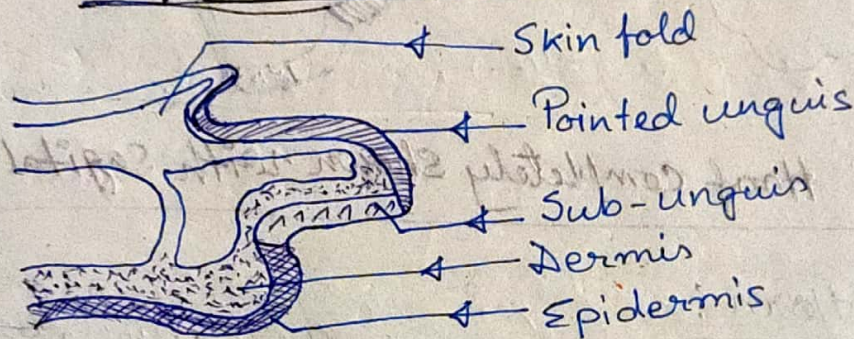 Skin fold
Pointed unguis
Sub-unguis
Dermis
Epidermis